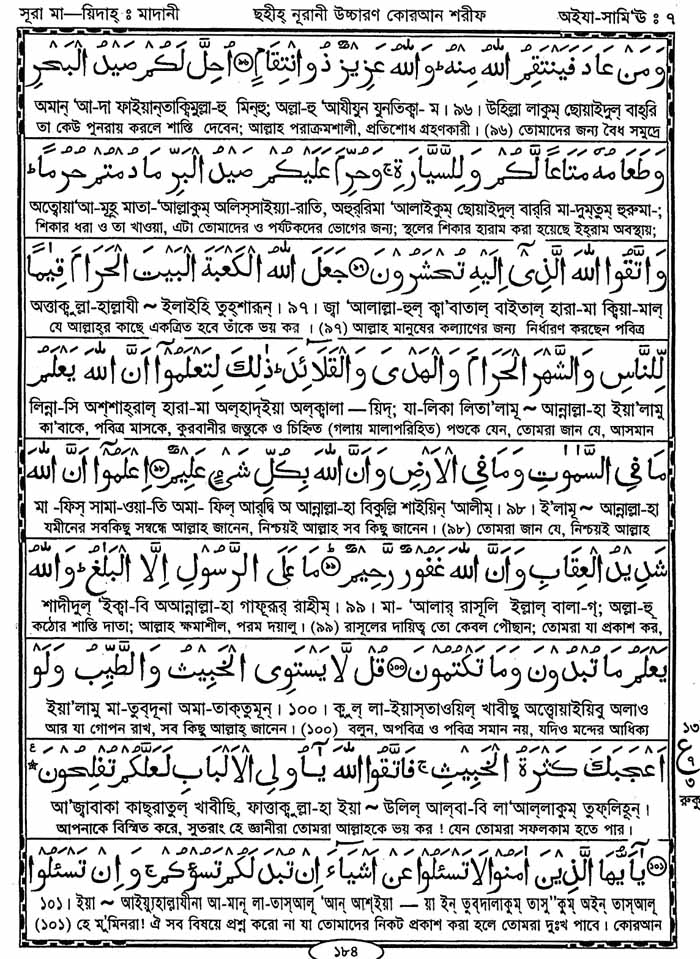 সূরা মা—য়িদাহ্ ঃ মাদানী ছহীহ্ নূরানী উচ্চারণ কোরআন শরীফ অইযা-সামি'ঊ ঃ ৭
وَمَنْ عَادَ فَيَنْتَقِمُ اللهُ مِنْهُ ؕ وَاللهُ عَزِيْزٌ ذُو انْتِقَامٍ ﴿۹۶﴾ اُحِلَّ لَكُمْ صَيْدُ الْبَحْرِ
অমান্ 'আ-দা ফাইয়ান্তাক্বিমুল্লা-হু মিন্হু; অল্লা-হু 'আযীযুন যুনতিক্বা- ম। ৯৬। উহিল্লা লাকুম্ ছোয়াইদুল্ বাহ্রি
তা কেউ পুনরায় করলে শাস্তি দেবেন; আল্লাহ পরাক্রমশালী, প্রতিশোধ গ্রহণকারী। (৯৬) তোমাদের জন্য বৈধ সমুদ্রে
وَطَعَامُهٗ مَتَاعًا لَّكُمْ وَلِلسَّيَّارَةِ ۚ وَحُرِّمَ عَلَيْكُمْ صَيْدُ الْبَرِّ مَا دُمْتُمْ حُرُمًا ؕ
অত্বোয়া'আ-মুহূ মাতা-'আল্লাকুম্ অলিস্সাইয়্যা-রাতি, অহুর্রিমা 'আলাইকুম্ ছোয়াইদুল্ বার্রি মা-দুম্তুম্ হুরুমা-;
শিকার ধরা ও তা খাওয়া, এটা তোমাদের ও পর্যটকদের ভোগের জন্য; স্থলের শিকার হারাম করা হয়েছে ইহ্রাম অবস্থায়;
وَاتَّقُوا اللهَ الَّذِيْۤ اِلَيْهِ تُحْشَرُوْنَ ﴿۹۷﴾ جَعَلَ اللهُ الْكَعْبَةَ الْبَيْتَ الْحَرَامَ قِيٰمًا
অত্তাক্বু ল্লা-হাল্লাযী ~ ইলাইহি তুহ্শারূন্। ৯৭। জ্বা 'আলাল্লা-হুল্ ক্বা'বাতাল্ বাইতাল্ হারা-মা ক্বিয়া-মাল্
যে আল্লাহ্র কাছে একত্রিত হবে তাঁকে ভয় কর। (৯৭) আল্লাহ মানুষের কল্যাণের জন্য নির্ধারণ করছেন পবিত্র
لِّلنَّاسِ وَالشَّهْرَ الْحَرَامَ وَالْهَدْيَ وَالْقَلَآئِدَ ؕ ذٰلِكَ لِتَعْلَمُوْۤا اَنَّ اللهَ يَعْلَمُ
লিন্না-সি অশ্শাহ্রাল্ হারা-মা অল্হাদ্ইয়া অল্ক্বালা —য়িদ্; যা-লিকা লিতা'লামূ ~ আন্নাল্লা-হা ইয়া'লামু
কা'বাকে, পবিত্র মাসকে, কুরবানীর জন্তুকে ও চিহ্নিত (গলায় মালাপরিহিত) পশুকে যেন, তোমরা জান যে, আসমান
مَا فِي السَّمٰوٰتِ وَمَا فِي الْاَرْضِ وَاَنَّ اللهَ بِكُلِّ شَيْءٍ عَلِيْمٌ ﴿۹۸﴾ اِعْلَمُوْۤا اَنَّ اللهَ
মা -ফিস্ সামা-ওয়া-তি অমা- ফিল্ আর্দ্বি অ আন্নাল্লা-হা বিকুল্লি শাইয়িন্ 'আলীম্। ৯৮। ই'লামূ ~ আন্নাল্লা-হা
যমীনের সবকিছু সম্বন্ধে আল্লাহ জানেন, নিশ্চয়ই আল্লাহ সব কিছু জানেন। (৯৮) তোমরা জান যে, নিশ্চয়ই আল্লাহ
شَدِيْدُ الْعِقَابِ وَاَنَّ اللهَ غَفُوْرٌ رَّحِيْمٌ ﴿۹۹﴾ مَا عَلَى الرَّسُوْلِ اِلَّا الْبَلٰغُ ؕ وَاللهُ
শাদীদুল্ 'ইক্বা-বি অআন্নাল্লা-হা গাফূরুর্ রাহীম্। ৯৯। মা- 'আলার্ রাসূলি ইল্লাল্ বালা-গ্; অল্লা-হু
কঠোর শাস্তি দাতা; আল্লাহ ক্ষমাশীল, পরম দয়ালু। (৯৯) রাসূলের দায়িত্ব তো কেবল পৌছান; তোমরা যা প্রকাশ কর,
يَعْلَمُ مَا تُبْدُوْنَ وَمَا تَكْتُمُوْنَ ﴿۱۰۰﴾ قُلْ لَّا يَسْتَوِى الْخَبِيْثُ وَالطَّيِّبُ وَلَوْ
ইয়া'লামু মা-তুব্দূনা অমা-তাক্তুমূন্। ১০০। ক্বুল্ লা-ইয়াস্তাওয়িল্ খাবীছু অত্ত্বোয়াইয়িবু অলাও
আর যা গোপন রাখ, সব কিছু আল্লাহ্ জানেন। (১০০) বলুন, অপবিত্র ও পবিত্র সমান নয়, যদিও মন্দের আধিক্য
اَعْجَبَكَ كَثْرَةُ الْخَبِيْثِ ۚ فَاتَّقُوا اللهَ يٰۤاُولِي الْاَلْبَابِ لَعَلَّكُمْ تُفْلِحُوْنَ
১৩
ع
৭
৩
রুকু
আ'জ্বাবাকা কাছ্রাতুল্ খাবীছি, ফাত্তাক্বু ল্লা-হা ইয়া ~ উলিল্ আল্বা-বি লা'আল্লাকুম্ তুফ্লিহূন্।
আপনাকে বিস্মিত করে, সুতরাং হে জ্ঞানীরা তোমরা আল্লাহকে ভয় কর! যেন তোমরা সফলকাম হতে পার।
﴿۱۰۱﴾ يٰۤاَيُّهَا الَّذِيْنَ اٰمَنُوْا لَا تَسْـَٔلُوْا عَنْ اَشْيَآءَ اِنْ تُبْدَ لَكُمْ تَسُؤْكُمْ ۚ وَاِنْ تَسْـَٔلُوْا
১০১। ইয়া ~ আইয়ুহাল্লাযীনা আ-মানূ লা-তাস্আলূ 'আন্ আশ্ইয়া — য়া ইন্ তুব্দালাকুম্ তাসু''কুম্ অইন্ তাস্আলূ
(১০১) হে মু'মিনরা! ঐ সব বিষয়ে প্রশ্ন করো না যা তোমাদের নিকট প্রকাশ করা হলে তোমরা দুঃখ পাবে। কোরআন
১৮৪